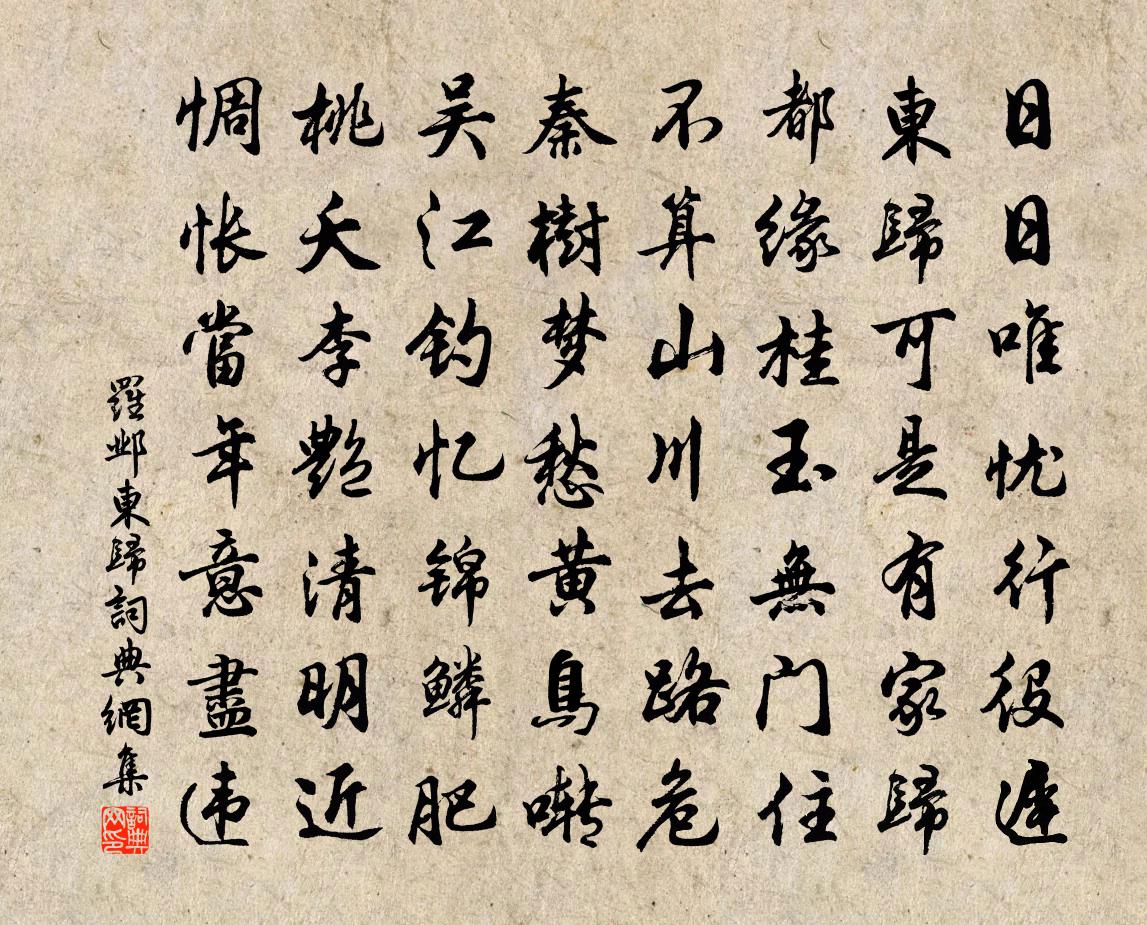 日日唯忧行役遲
東歸可是有家歸
都缘桂玉無门住
不算山川去路危
秦樹梦愁黄鳥囀
吴江钓忆锦鳞肥
桃夭李艷清明近
惆怅當年意盡违
羅邺東歸詞典網集
詞典网印